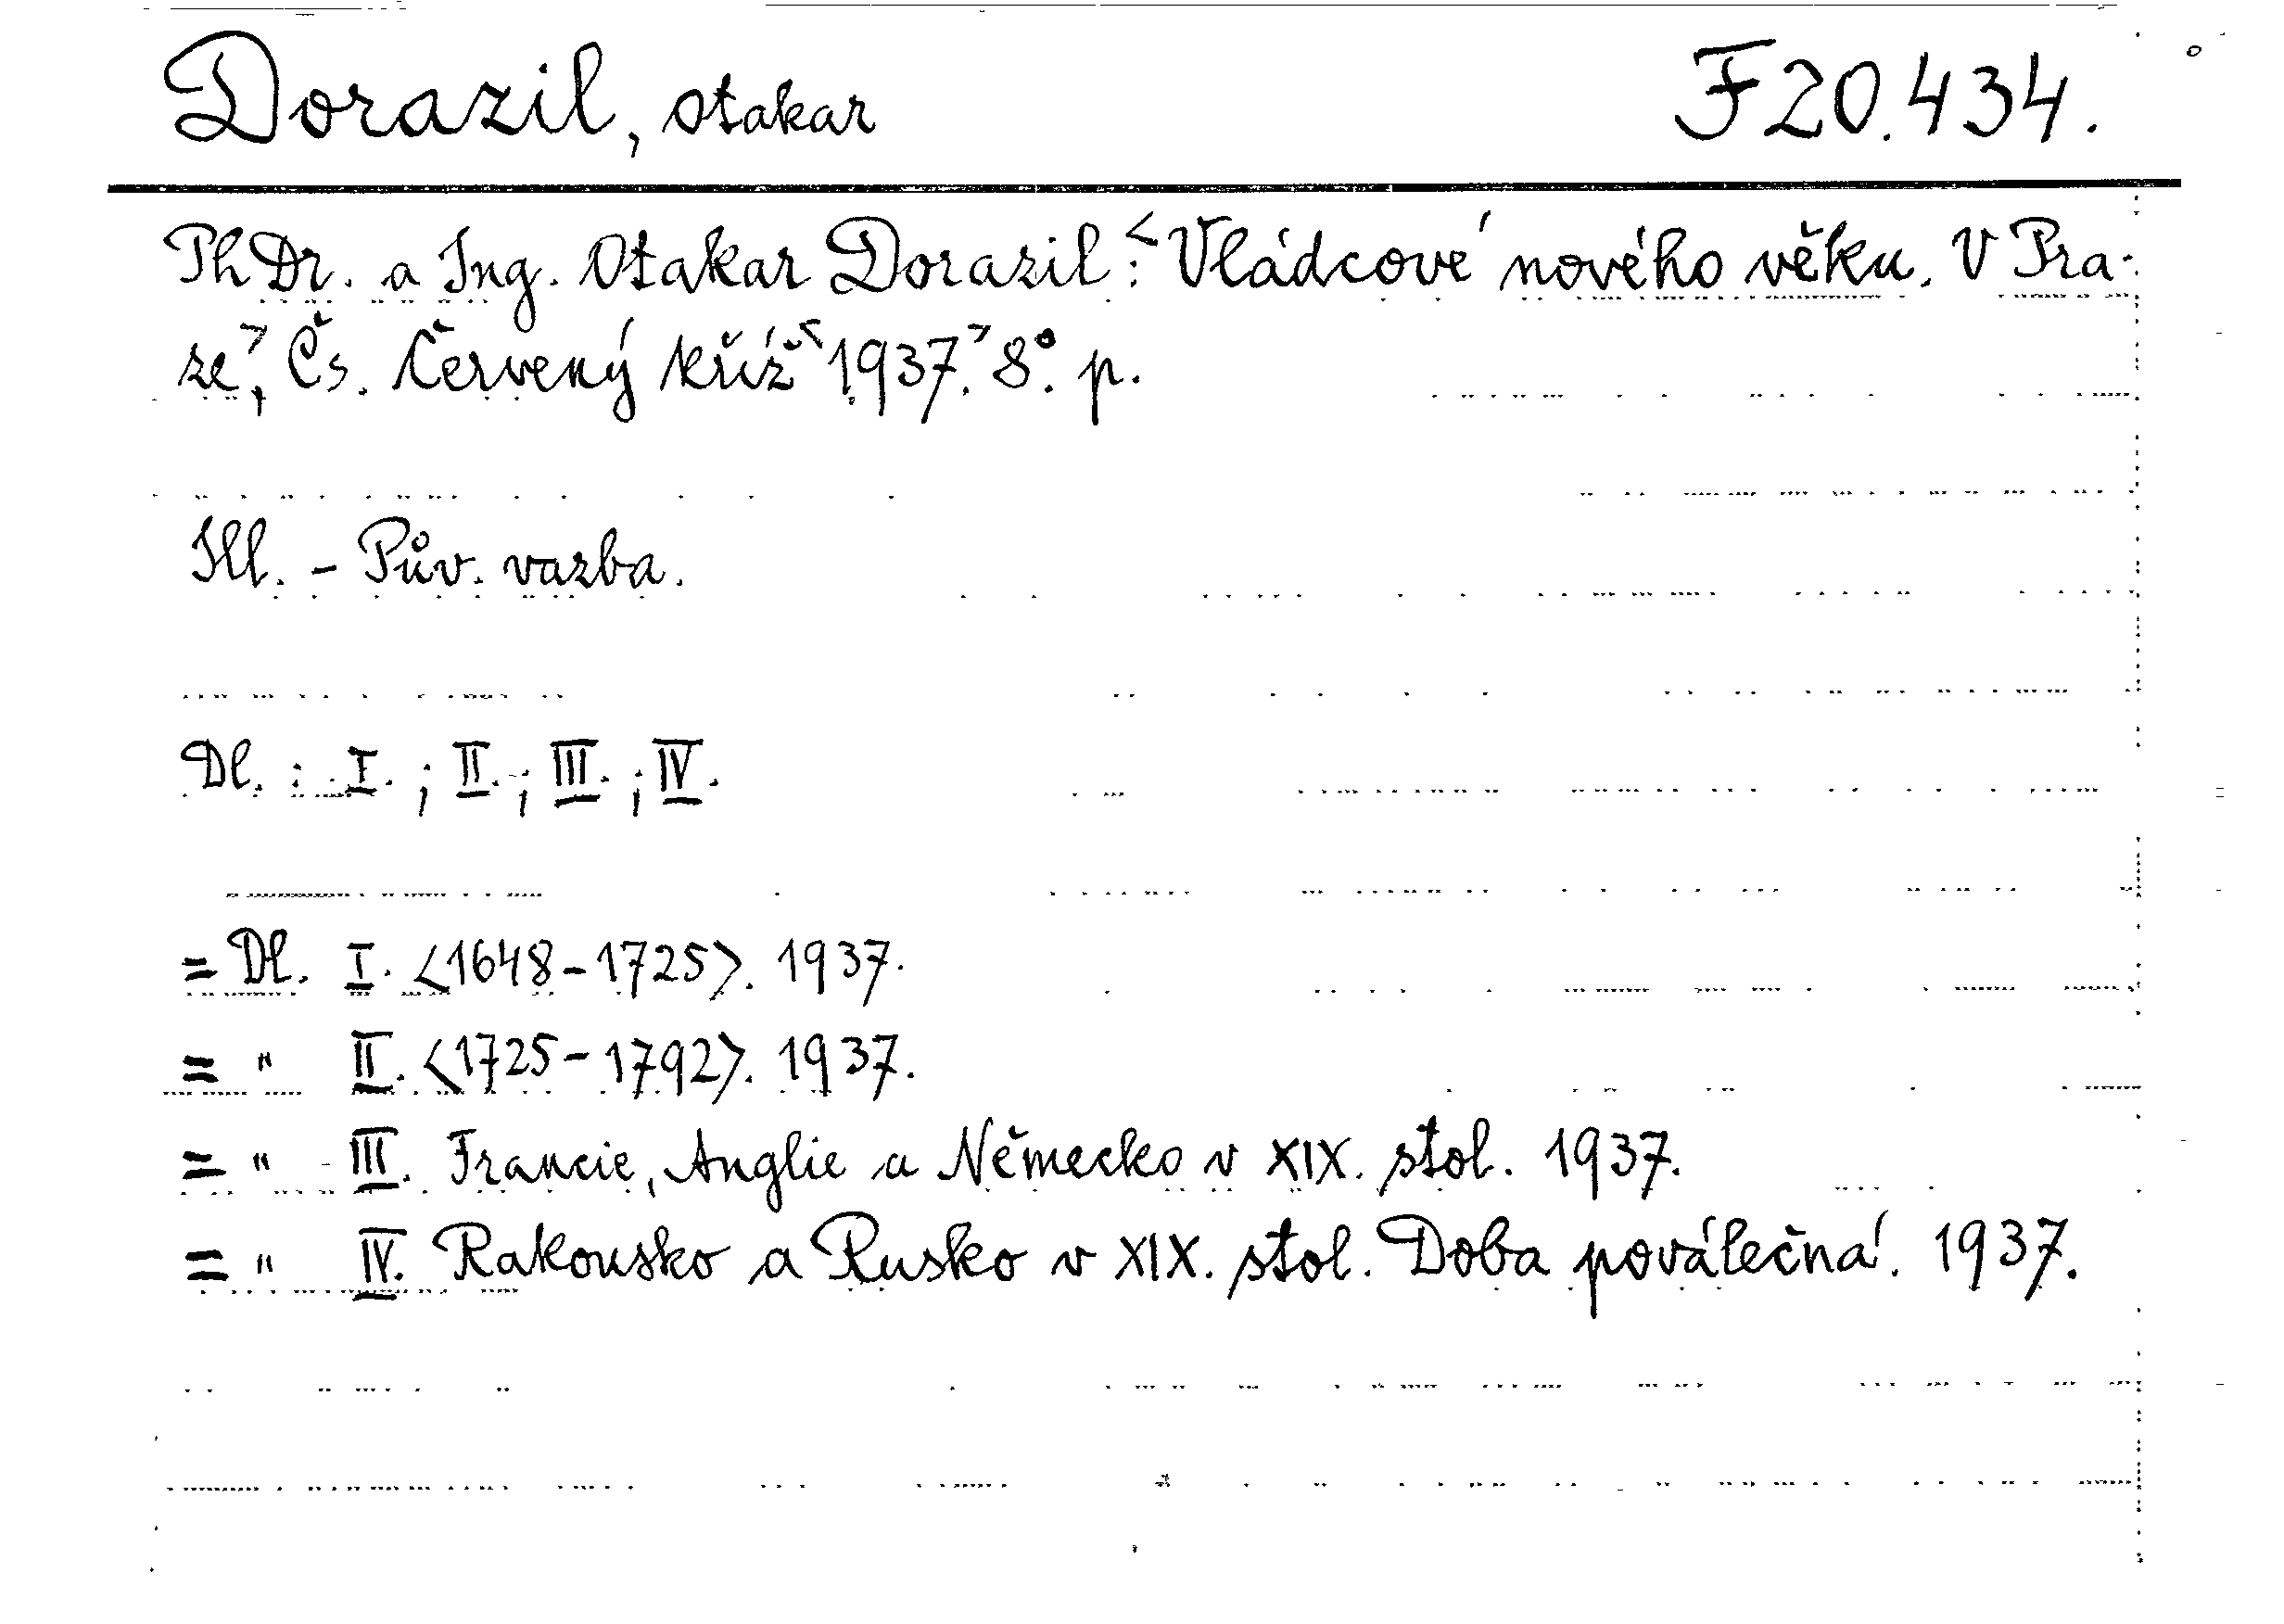 Dorazil, Otakar F 20.434.
PhDr. a Ing. Otakar Dorazil: <Vládcové nového věku. V Pra-
ze>, Čs. Červený kříž <1937.> 8°. p.
Ill. - Pův. vazba.
Dl. : I. ; II. ; III. ; IV.
= Dl. I. <1648-1725>. 1937.
= " II. <1725-1792>. 1937.
= " III. Francie, Anglie a Německo v XIX. stol. 1937.
= " IV. Rakousko a Rusko v XIX. stol. Doba poválečná. 1937.